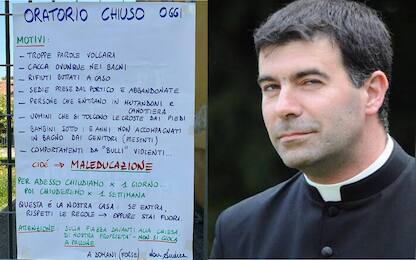 ORATORIO CHIUSO OGGI
MOTIVI:
- TROPPE PAROLE VOLGARI
- CACCA OVUNQUE NEI BAGNI
- RIFIUTI BUTTATI A CASO
- SEDIE PRESE DAL PORTICO E ABBANDONATE
- PERSONE CHE ENTRANO IN MUTANDONI E
CANOTTIERA
- UOMINI CHE SI TOLGONO LE CROSTE DAI PIEDI
- BAMBINI SOTTO I 6 ANNI NON ACCOMPAGNATI
IN BAGNO DAI GENITORI (PRESENTI)
- COMPORTAMENTI DA "BULLI" VIOLENTI...
CIOÈ → MALEDUCAZIONE
PER ADESSO CHIUDIAMO X 1 GIORNO...
POI CHIUDEREMO X 1 SETTIMANA
QUESTA È LA NOSTRA CASA: SE ENTRI,
RISPETTI LE REGOLE → OPPURE STAI FUORI
ATTENZIONE: SULLA PIAZZA DAVANTI ALLA CHIESA
DI NOSTRA PROPRIETÀ NON SI GIOCA
A PALLONE
A DOMANI (FORSE) Don Andrea